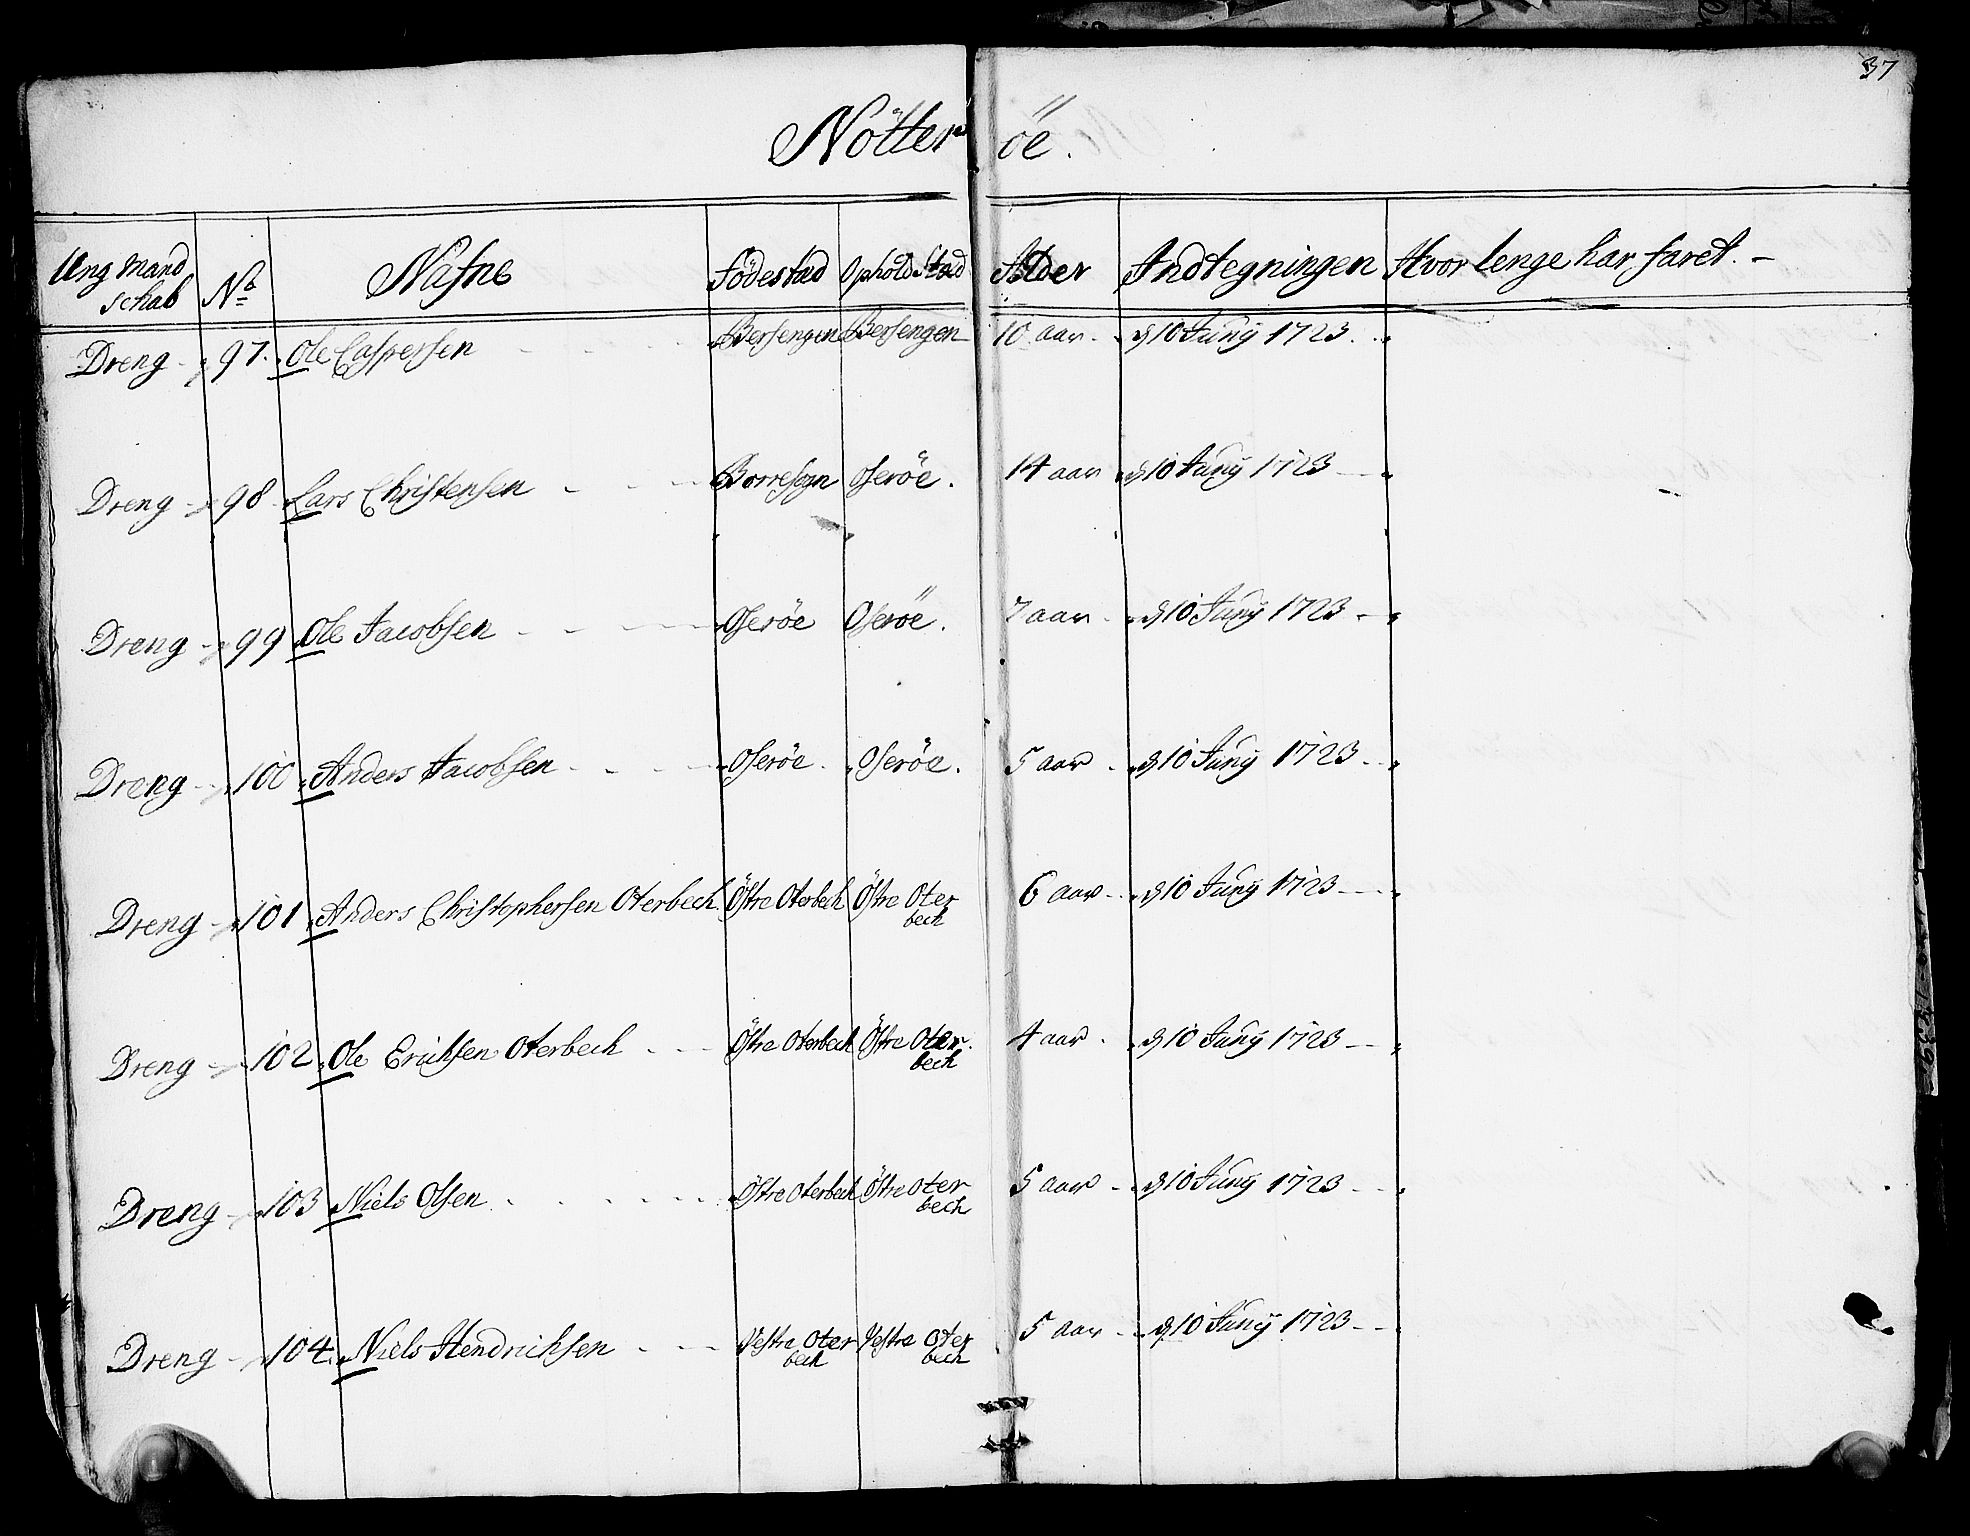 37
Nötter öe.
Ung mand schab No Nafne Födestæd Ophold Stæd Alder Indtegningen Hvor lenge har faret. -
Dreng 97. Ole Caspersen Bersengen Bersengen 10 aar. d 10 Junij 1723.
Dreng 98 Lars Christensen Borresogn Oseröe. 14 aar d 10 Junij 1723
Dreng 99 Ole Jacobsen Oseröe Oseröe. 7 aar d 10 Junij 1723
Dreng 100 Anders Jacobsen Oseröe. Oseröe. 5 aar d 10 Junij 1723
Dreng 101 Anders Christophersen Oterbech Östre Oterbech Östre Oter bech 6 aar d 10 Junij 1723
Dreng 102 Ole Erichsen Oterbech Östre Oterbech Östre Oter bech 4 aar d 10 Junij 1723
Dreng 103 Niels Olsen Östre Oterbech Östre Oter bech 5 aar d 10 Junij 1723
Dreng 104. Niels Hendrichsen Vestre Oter bech Vestre Oter bech 5 aar d 10 Junij 1723